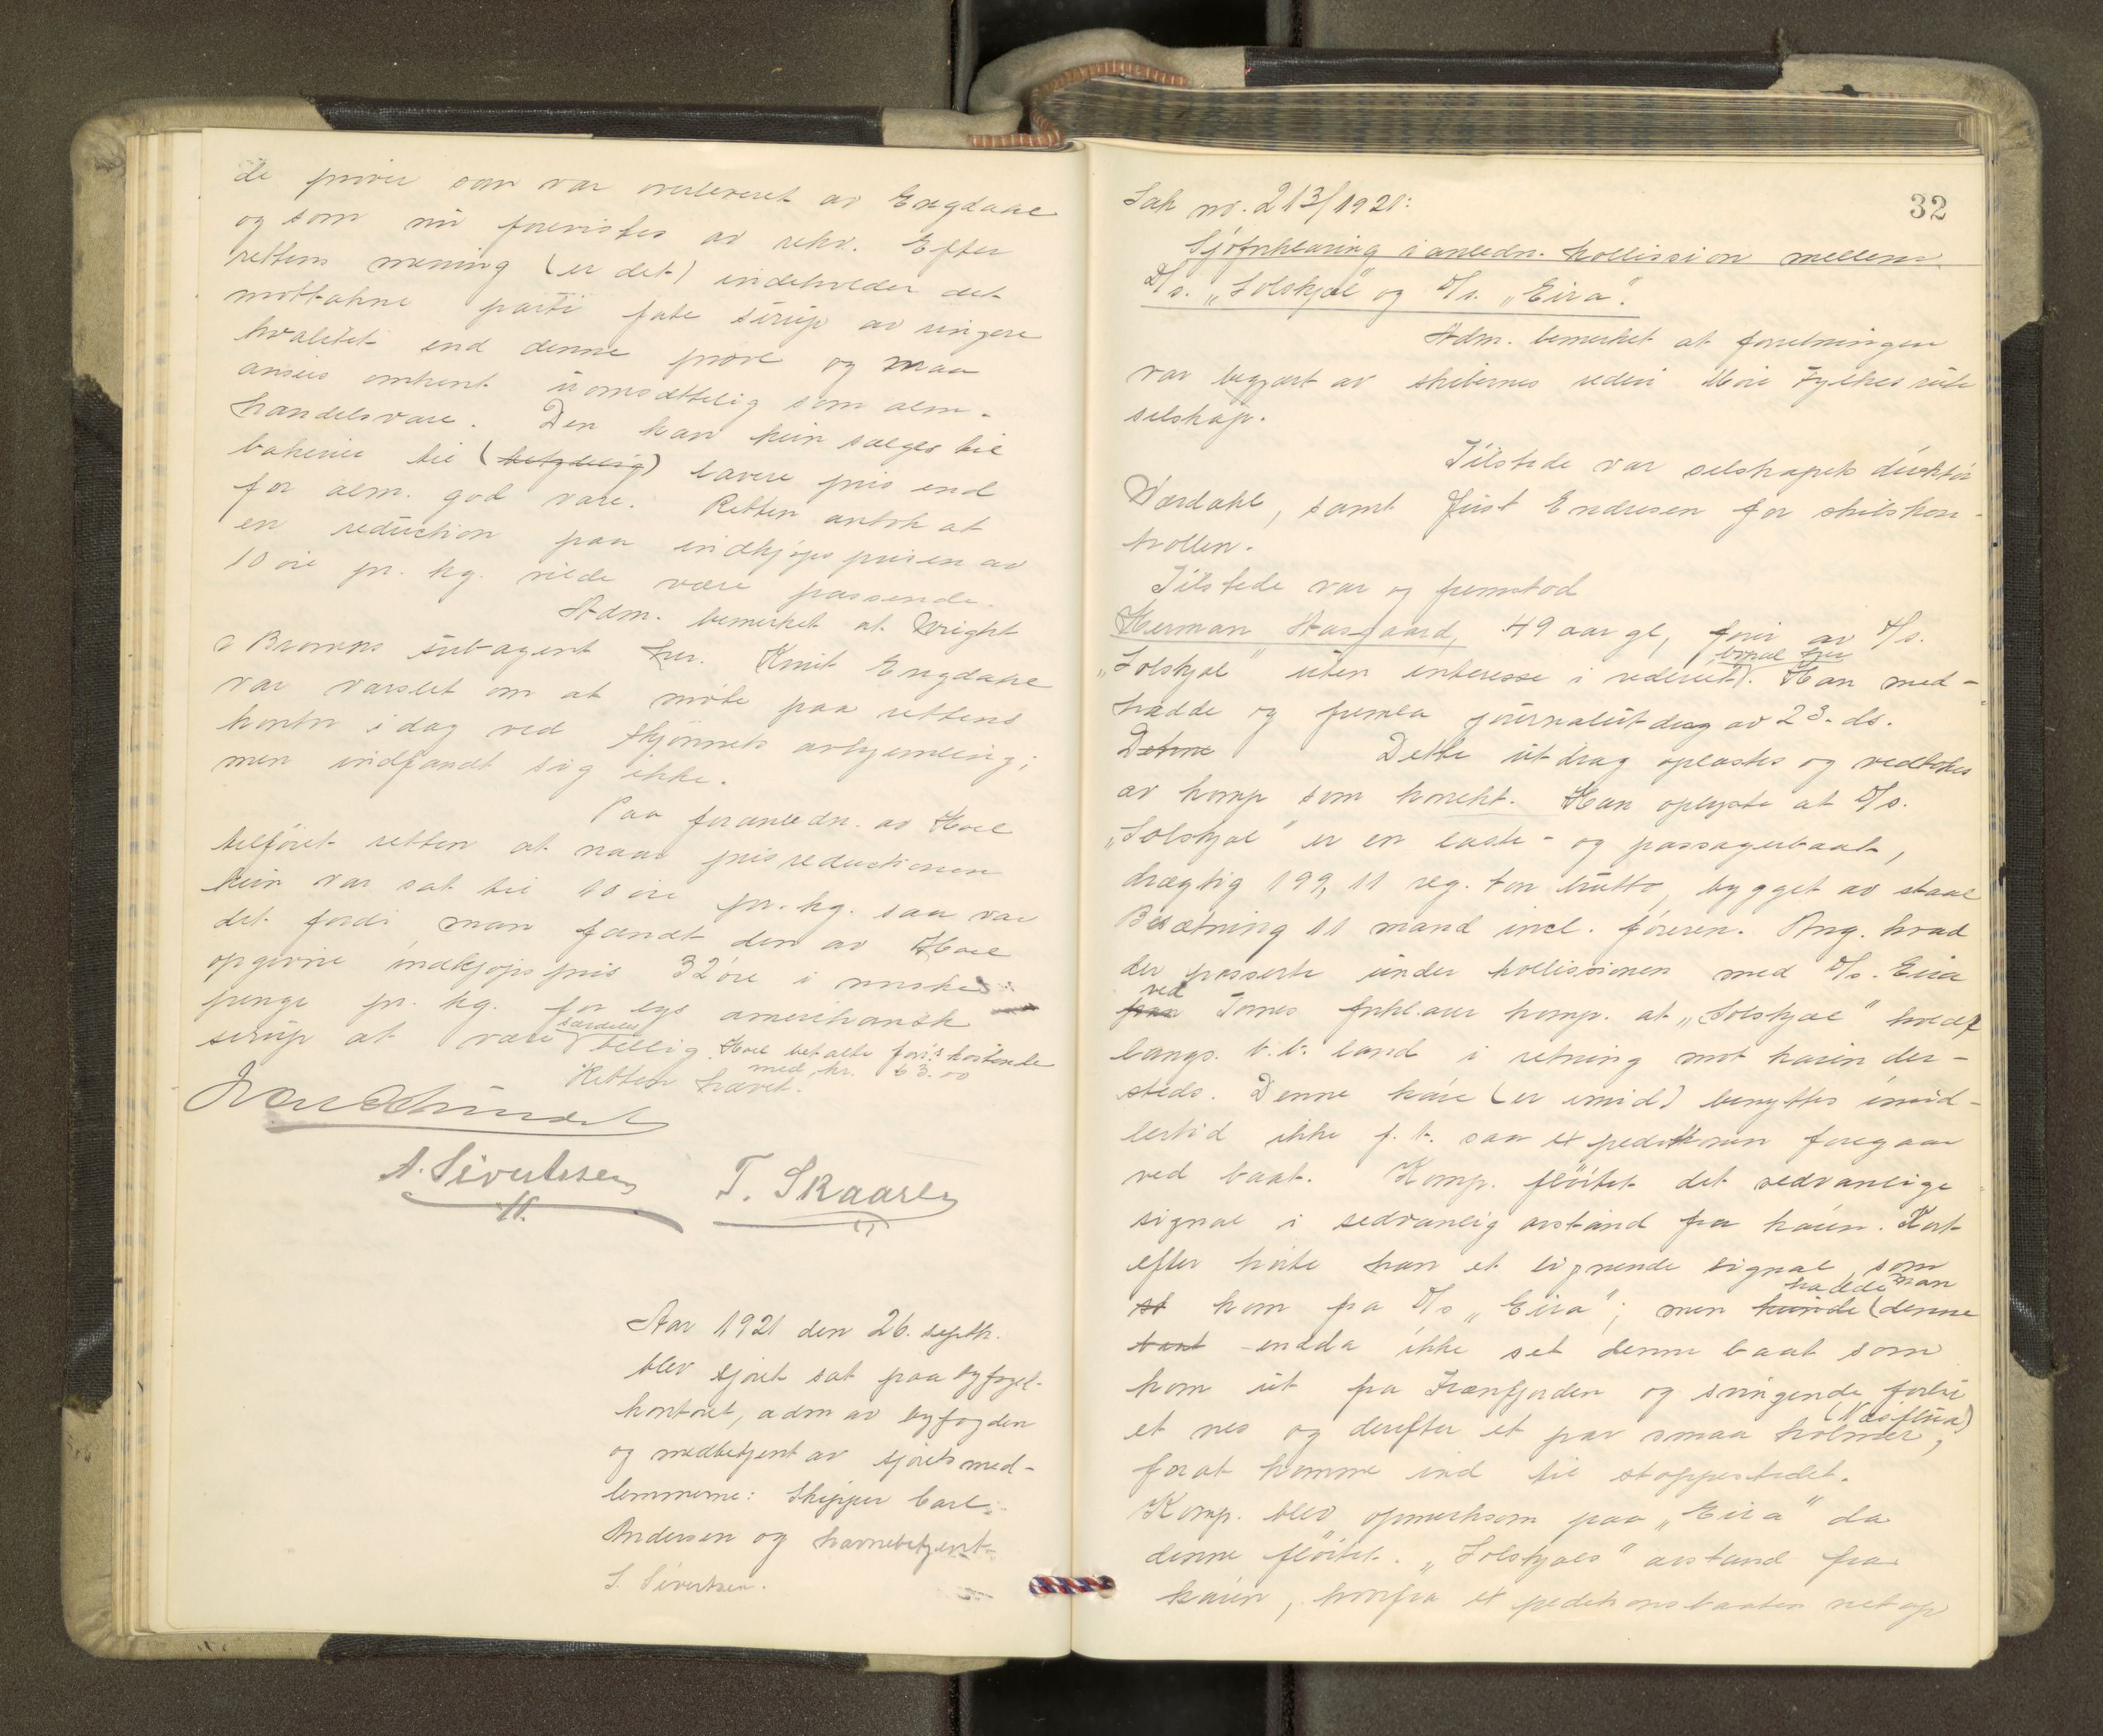 de prøver som var overleveret av Engdahl
og som nu forevistes av rekv. Efter
rettens mening (er det) indeholder det
mottatne parti fate sirup av ringere
kvalitet end denne prøve og maa
ansees omtrent uomsættelig som alm.
handelsvare. Den kan kun sælges til
bakerier til (betydelig) lavere pris end
for alm. god vare. Retten antok at
en reduction paa indkjøpsprisen av
10 øre pr. kg. vilde være passende.
Adm. bemerket at Wright
& Browns subagent hr. Knut Engdahl
var varslet om at møte paa rettens
kontor idag ved skjønnets avhjemling;
men indfandt sig ikke.
Paa foranledn. av Hoel
tilføiet retten at naar prisreductionen
kun var sat til 10 øre pr. kg. saa var
det fordi man fandt den av Hoel
opgivne indkjøpspris 32 øre i norske
penge pr. kg. for lys amerikansk
sirup at være særdeles billig. Hoel betalte forr.s kostende
med kr. 63.00
Retten hævet.
A. Sivertsen
T. Skaarly
Aar 1921 den 26. septb.
blev sjøret sat paa byfoged-
kontoret, adm av byfogden
og medbetjent av sjøretsmed-
lemmerne: Skipper Carl
Andersen og havnebetjent
S. Sivertsen.
32
Sak no. 213/1921:
Sjøforklaring i anledn. kollission mellem
D/s. "Solskjel" og D/s. "Eira".
Adm. bemerket at forretningen
var begjært av skibernes rederi Møre Fylkes rute
selskap.
Tilstede var selskapets direktør
Værdahl, samt Just Endresen for skibskon-
trollen.
Tilstede var og fremstod
Herman Aasgaard, 49 aar gl, fører av D/s.
"Solskjel" uten interesse i rederiet, bopæl her. Han med-
hadde og fremla journalutdrag av 23. ds.
Denne Dette utdrag oplæstes og vedtokes
av komp som korrekt. Han oplyste at D/s.
"Solskjel" er en laste- og passagerbaat,
drægtig 199,11 reg. ton brutto, bygget av staal
Besætning 11 mand incl. føreren. Ang. hvad
der passerte under kollissionen med D/s. Eira
paa ved Tornes forkl.aer komp. at "Solskjel" holdt
langs b.b. land i retning mot kaien der-
steds. Denne kaie (er imid) benyttes imid-
lertid ikke f. t. saa expeditionen foregaar
ved baat. Komp. fløitet det sedvanlige
signal i sedvanlig avstand fra kaien. Kort
efter hørte han et lignende signal, som
st kom fra D/s "Eira"; men kunde hadde man (denne
baat endda ikke set denne baat som
kom ut fra Frænfjorden og svingende forbi
et nes og derefter et par smaa holmer (Næsflua),
forat komme ind til stoppestedet.
Komp. blev opmerksom paa "Eira" da
denne fløitet. "Solskjels" avstand fra
kaien, hvorfra expeditionsbaaten netop